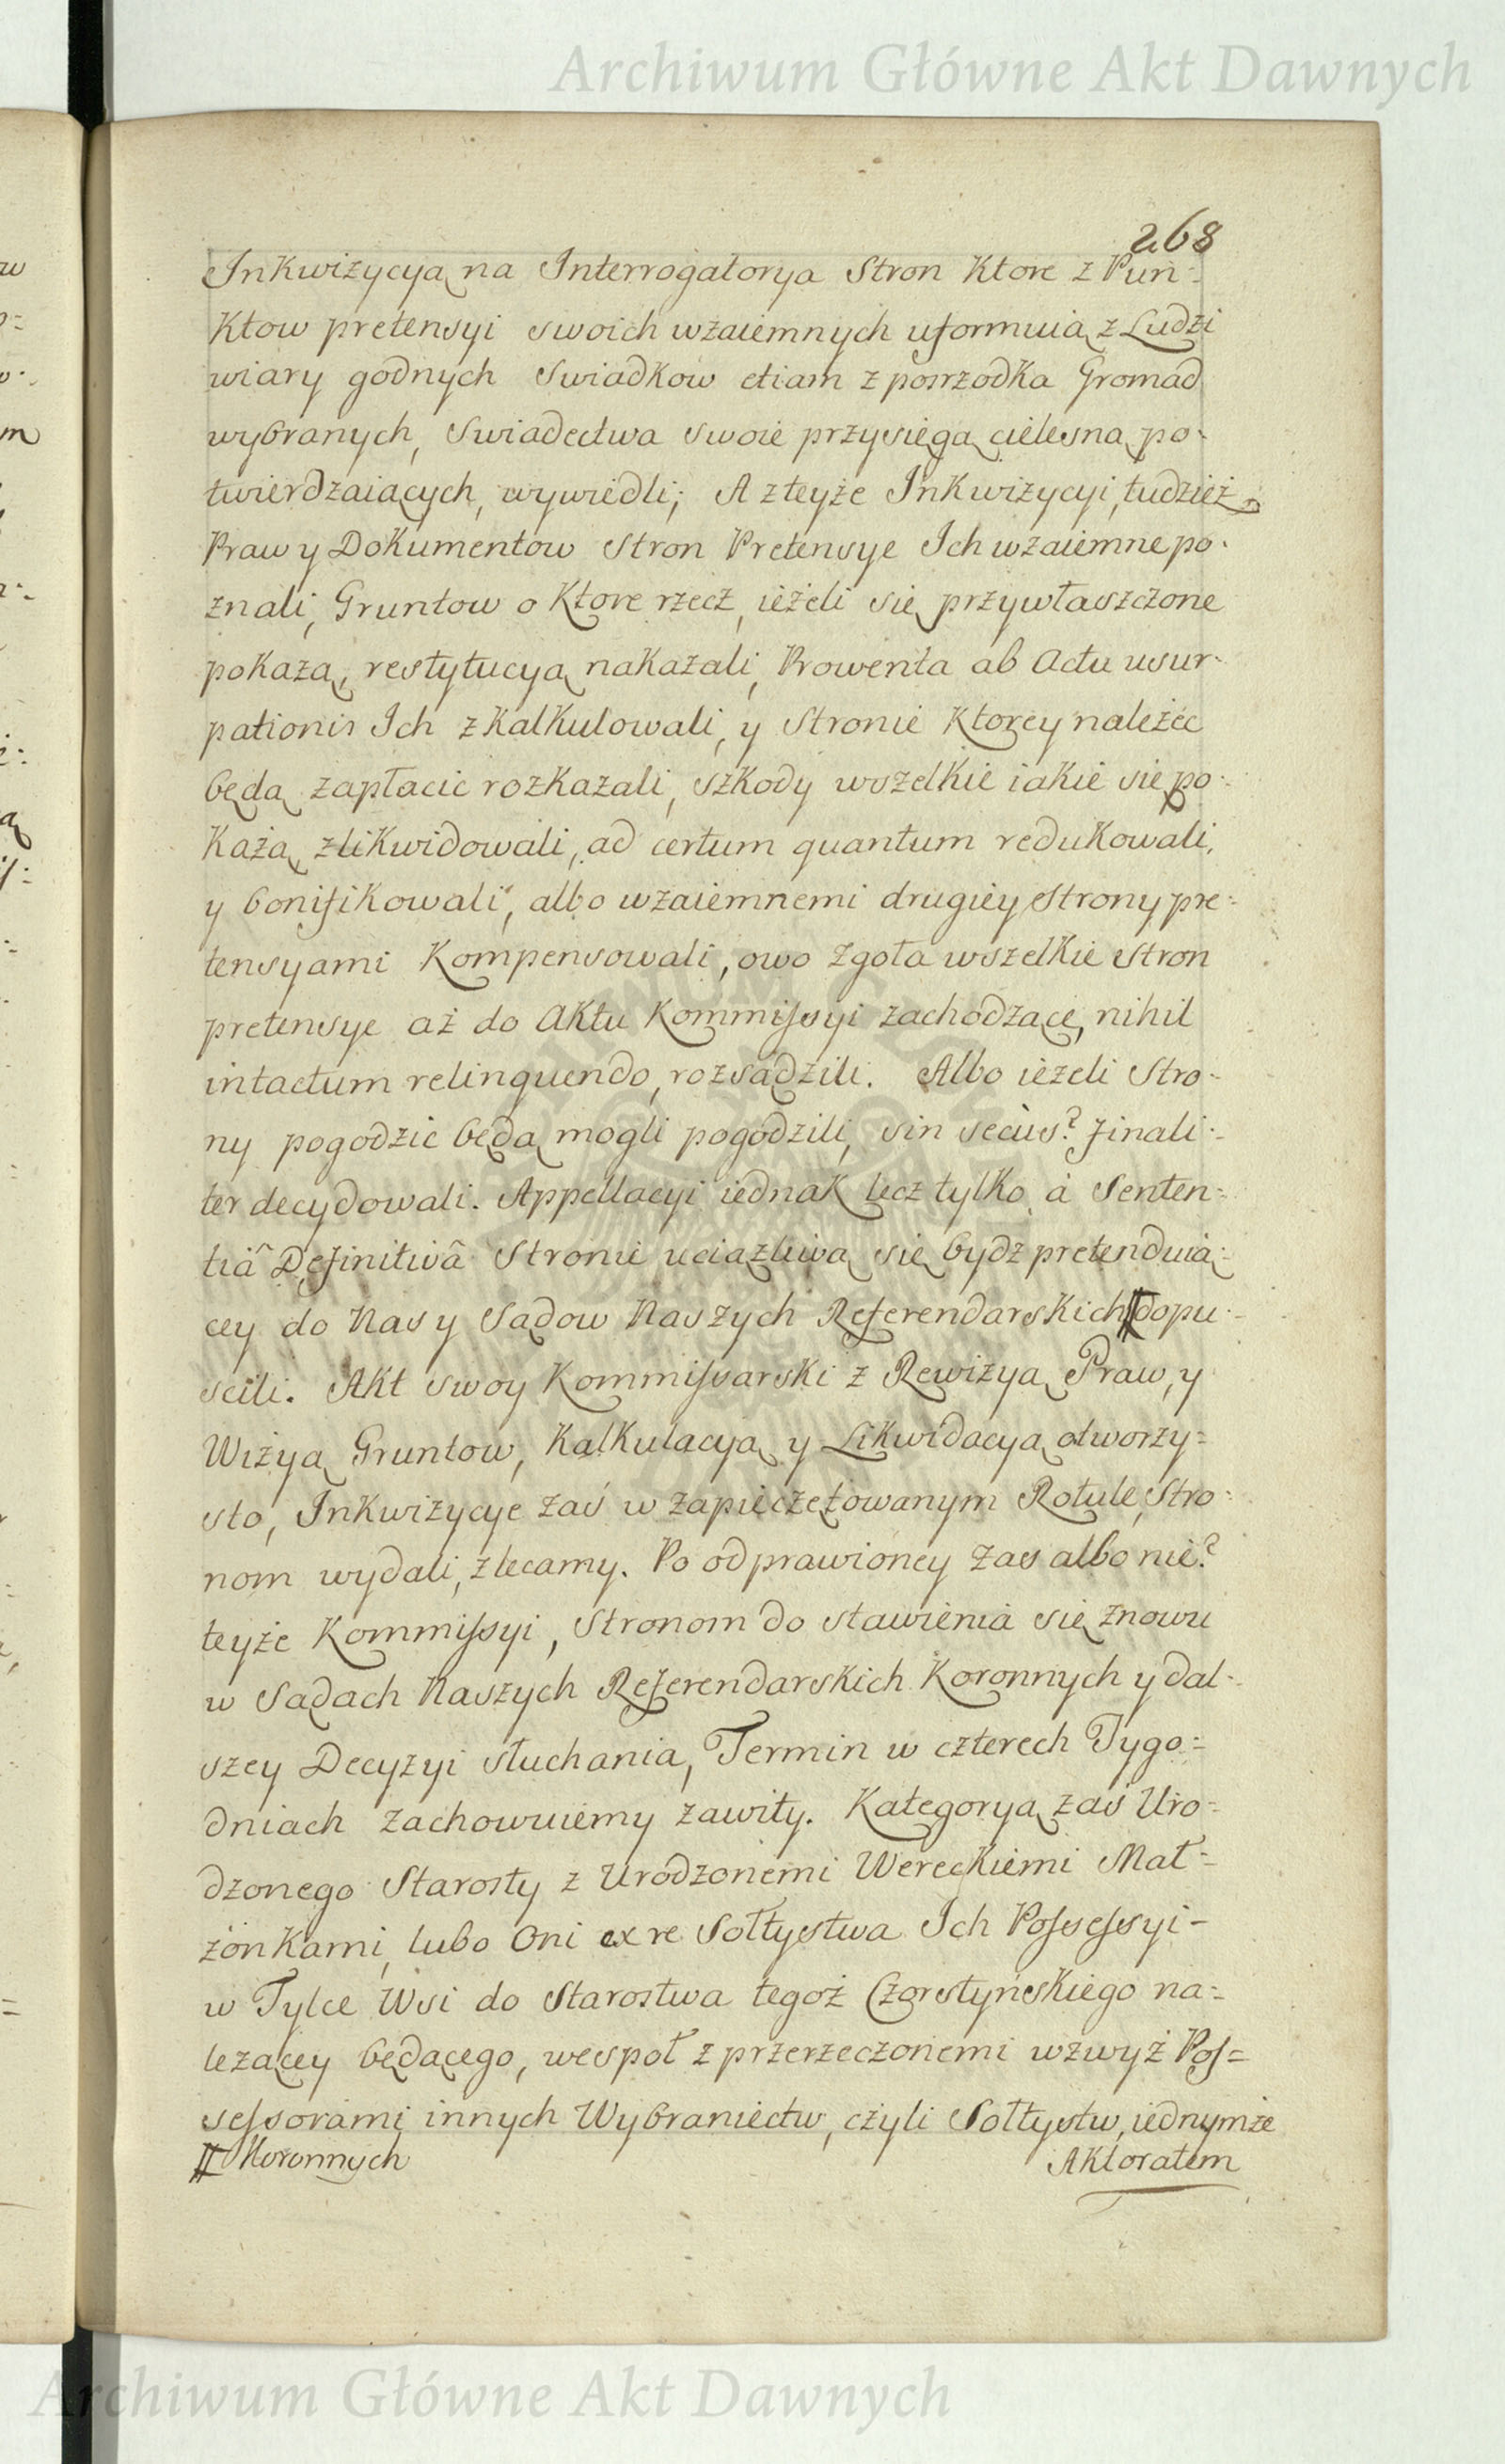 Archiwum Główne Akt Dawnych
268
Inkwizycyą na Interrogatorya Stron Ktore z Pun-
Ktow pretensyi swoich wzaiemnych uformuią z Ludzi
wiary godnych Swiadkow etiam z posrzodka Gromad
wybranych, Swiadectwa swoie przysięgą cielesną po-
twierdzaiących, wywiedli; A z teyże Inkwizycyi, tudzież
Praw y Dokumentow Stron Pretensye Ich wzaiemne po-
znali, Gruntow o Ktore rzecz, ieżeli się przywłaszczone
pokażą, restytucyą nakazali, Prowenta ab Actu usur-
pationis Ich zkalkulowali, y Stronie Ktorey należec
będą zapłacic rozkazali, szkody wszelkie iakie się po-
Każą zlikwidowali, ad certum quantum redukowali,
y bonifikowali, albo wzaiemnemi drugiey Strony pre=
tensyami Kompensowali, owo zgoła wszelkie Stron
pretensye aż do Aktu Kommissyi zachodzące, nihil
intactum relinquendo, rozsądzili. Albo ieżeli Stro-
ny pogodzic będą mogli pogodzili, sin secùs? finali-
ter decydowali. Appellacyi iednak lecz tylko à Senten=
tiâ Definitivâ Stronie uciążliwą się bydz pretenduią=
cey do Nas y Sądow Naszych Referendarskich # dopu-
scili. Akt swoy Kommissarski z Rewizyą Praw, y
Wizyą Gruntow, Kalkulacyą y Likwidacyą otworzy=
sto, Inkwizycye zaś w zapieczętowanym Rotule, Stro-
nom wydali, zlecamy. Po odprawioney zas albo nie?
teyże Kommissyi, Stronom do stawienia się znowu
w Sądach Naszych Referendarskich Koronnych y dal-
szey Decyzyi słuchania, Termin w czterech Tygo=
dniach zachowuiemy zawity. Kategoryą zaś Uro=
dzonego Starosty z Urodzonemi Wereckiemi Mał=
żonkami, lubo Oni ex re Sołtystwa Ich Possessyi-
w Tylce Wsi do Starostwa tegoż Czorstyńskiego na=
leżącey będącego, wespoł z przerzeczonemi wzwyż Pos=
sessorami innych Wybraniectw, czyli Sołtystw, iednymże
# Koronnych
Aktoratem
Archiwum Główne Akt Dawnych